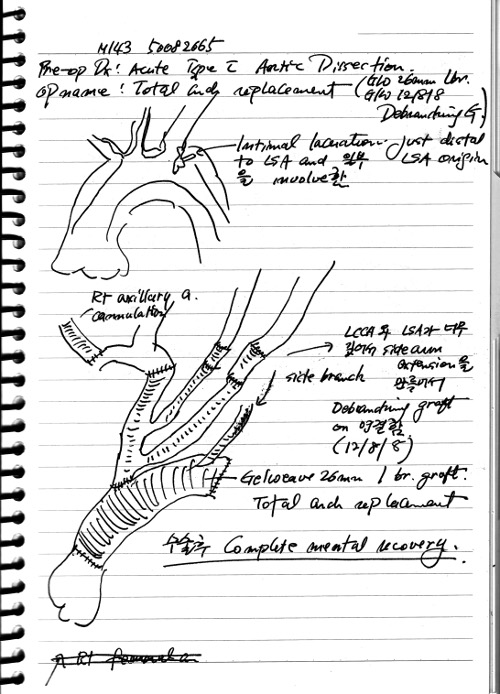 M/43 50082665
Pre-op Dx: Acute Type I Aortic Dissection.
op name: Total arch replacement (G/W 26mm 1br.
G/W 12/8/8
Debranching G.)
Intimal laceration: just distal
to LSA and 일부 LSA origin
을 involve함
Rt axillary a.
cannulation
LCCA와 LSA가 너무
깊어서 side arm
extension을
만들어서
side branch
Debranching graft
에 연결함
(12/8/8)
Gelweave 26mm 1 br. graft.
Total arch replacement
수술후 Complete mental recovery.